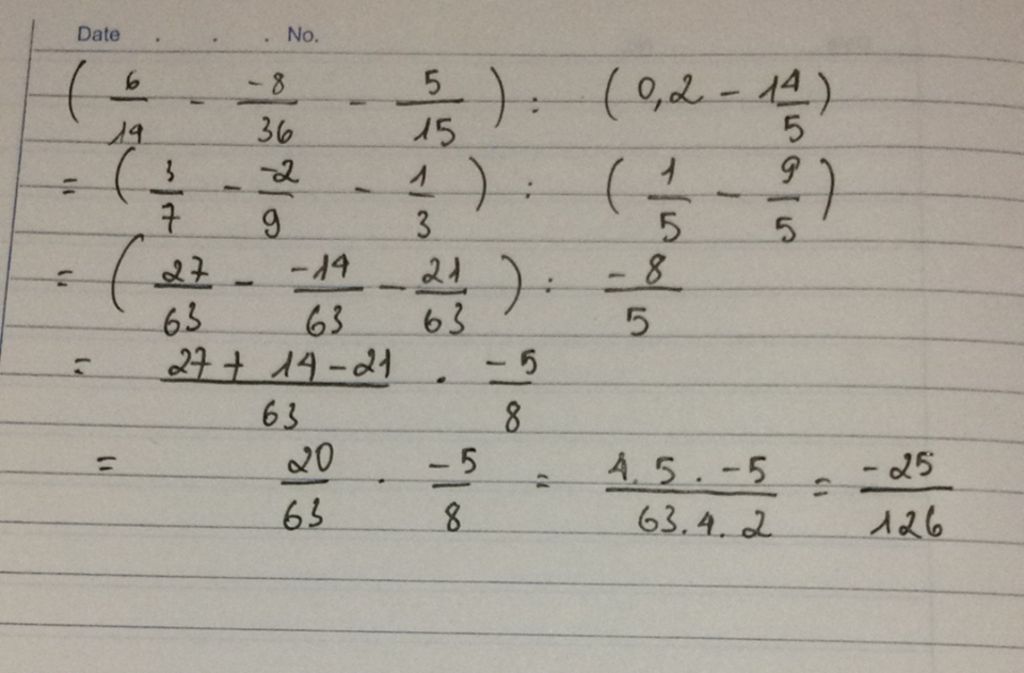 Date . . . No.
( 6/14 - -8/36 - 5/15 ) : ( 0,2 - 1 4/5 )
= ( 3/7 - -2/9 - 1/3 ) : ( 1/5 - 9/5 )
= ( 27/63 - -14/63 - 21/63 ) : -8/5
= 27 + 14 - 21/63 . -5/8
= 20/63 . -5/8 = 4.5.-5/63.4.2 = -25/126